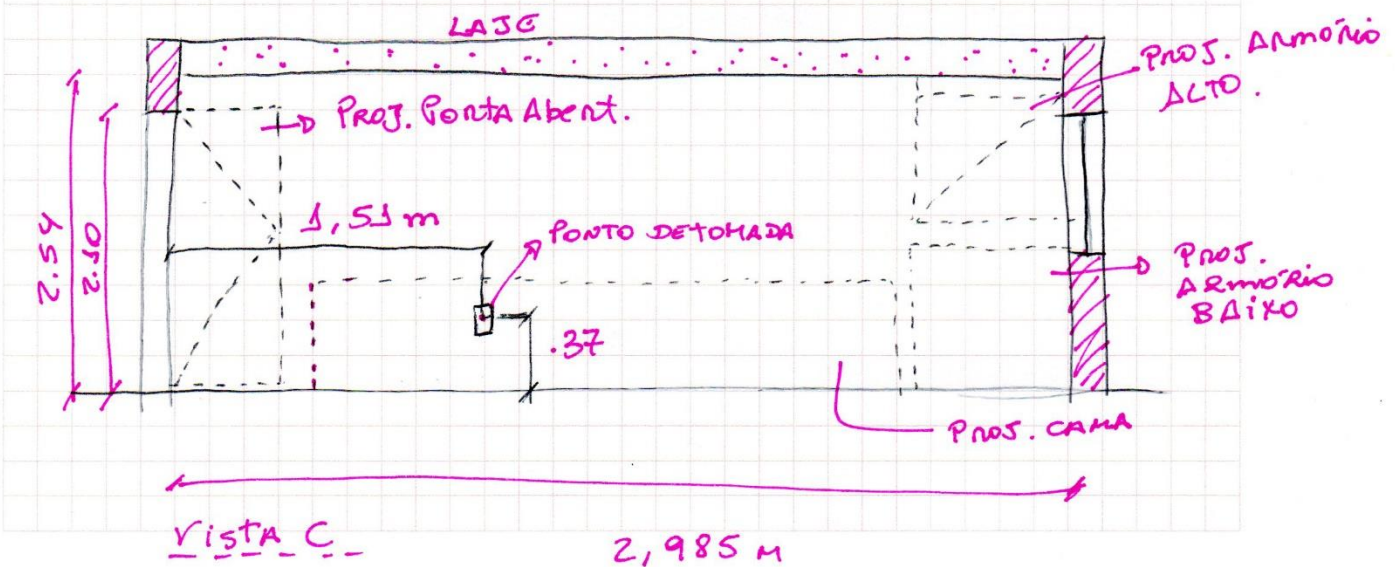 LAJE
PROJ. ARMÓRIO
ALTO.
PROJ. PORTA Abert.
1,51 m
PONTO DE TOMADA
2.54
2.10
PROJ.
ARMÓRIO
BAIXO
.37
PROJ. CAMA
VISTA C
2,985 M